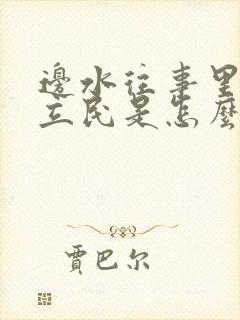 邊水往事里
立民是怎麼
賈巴尔